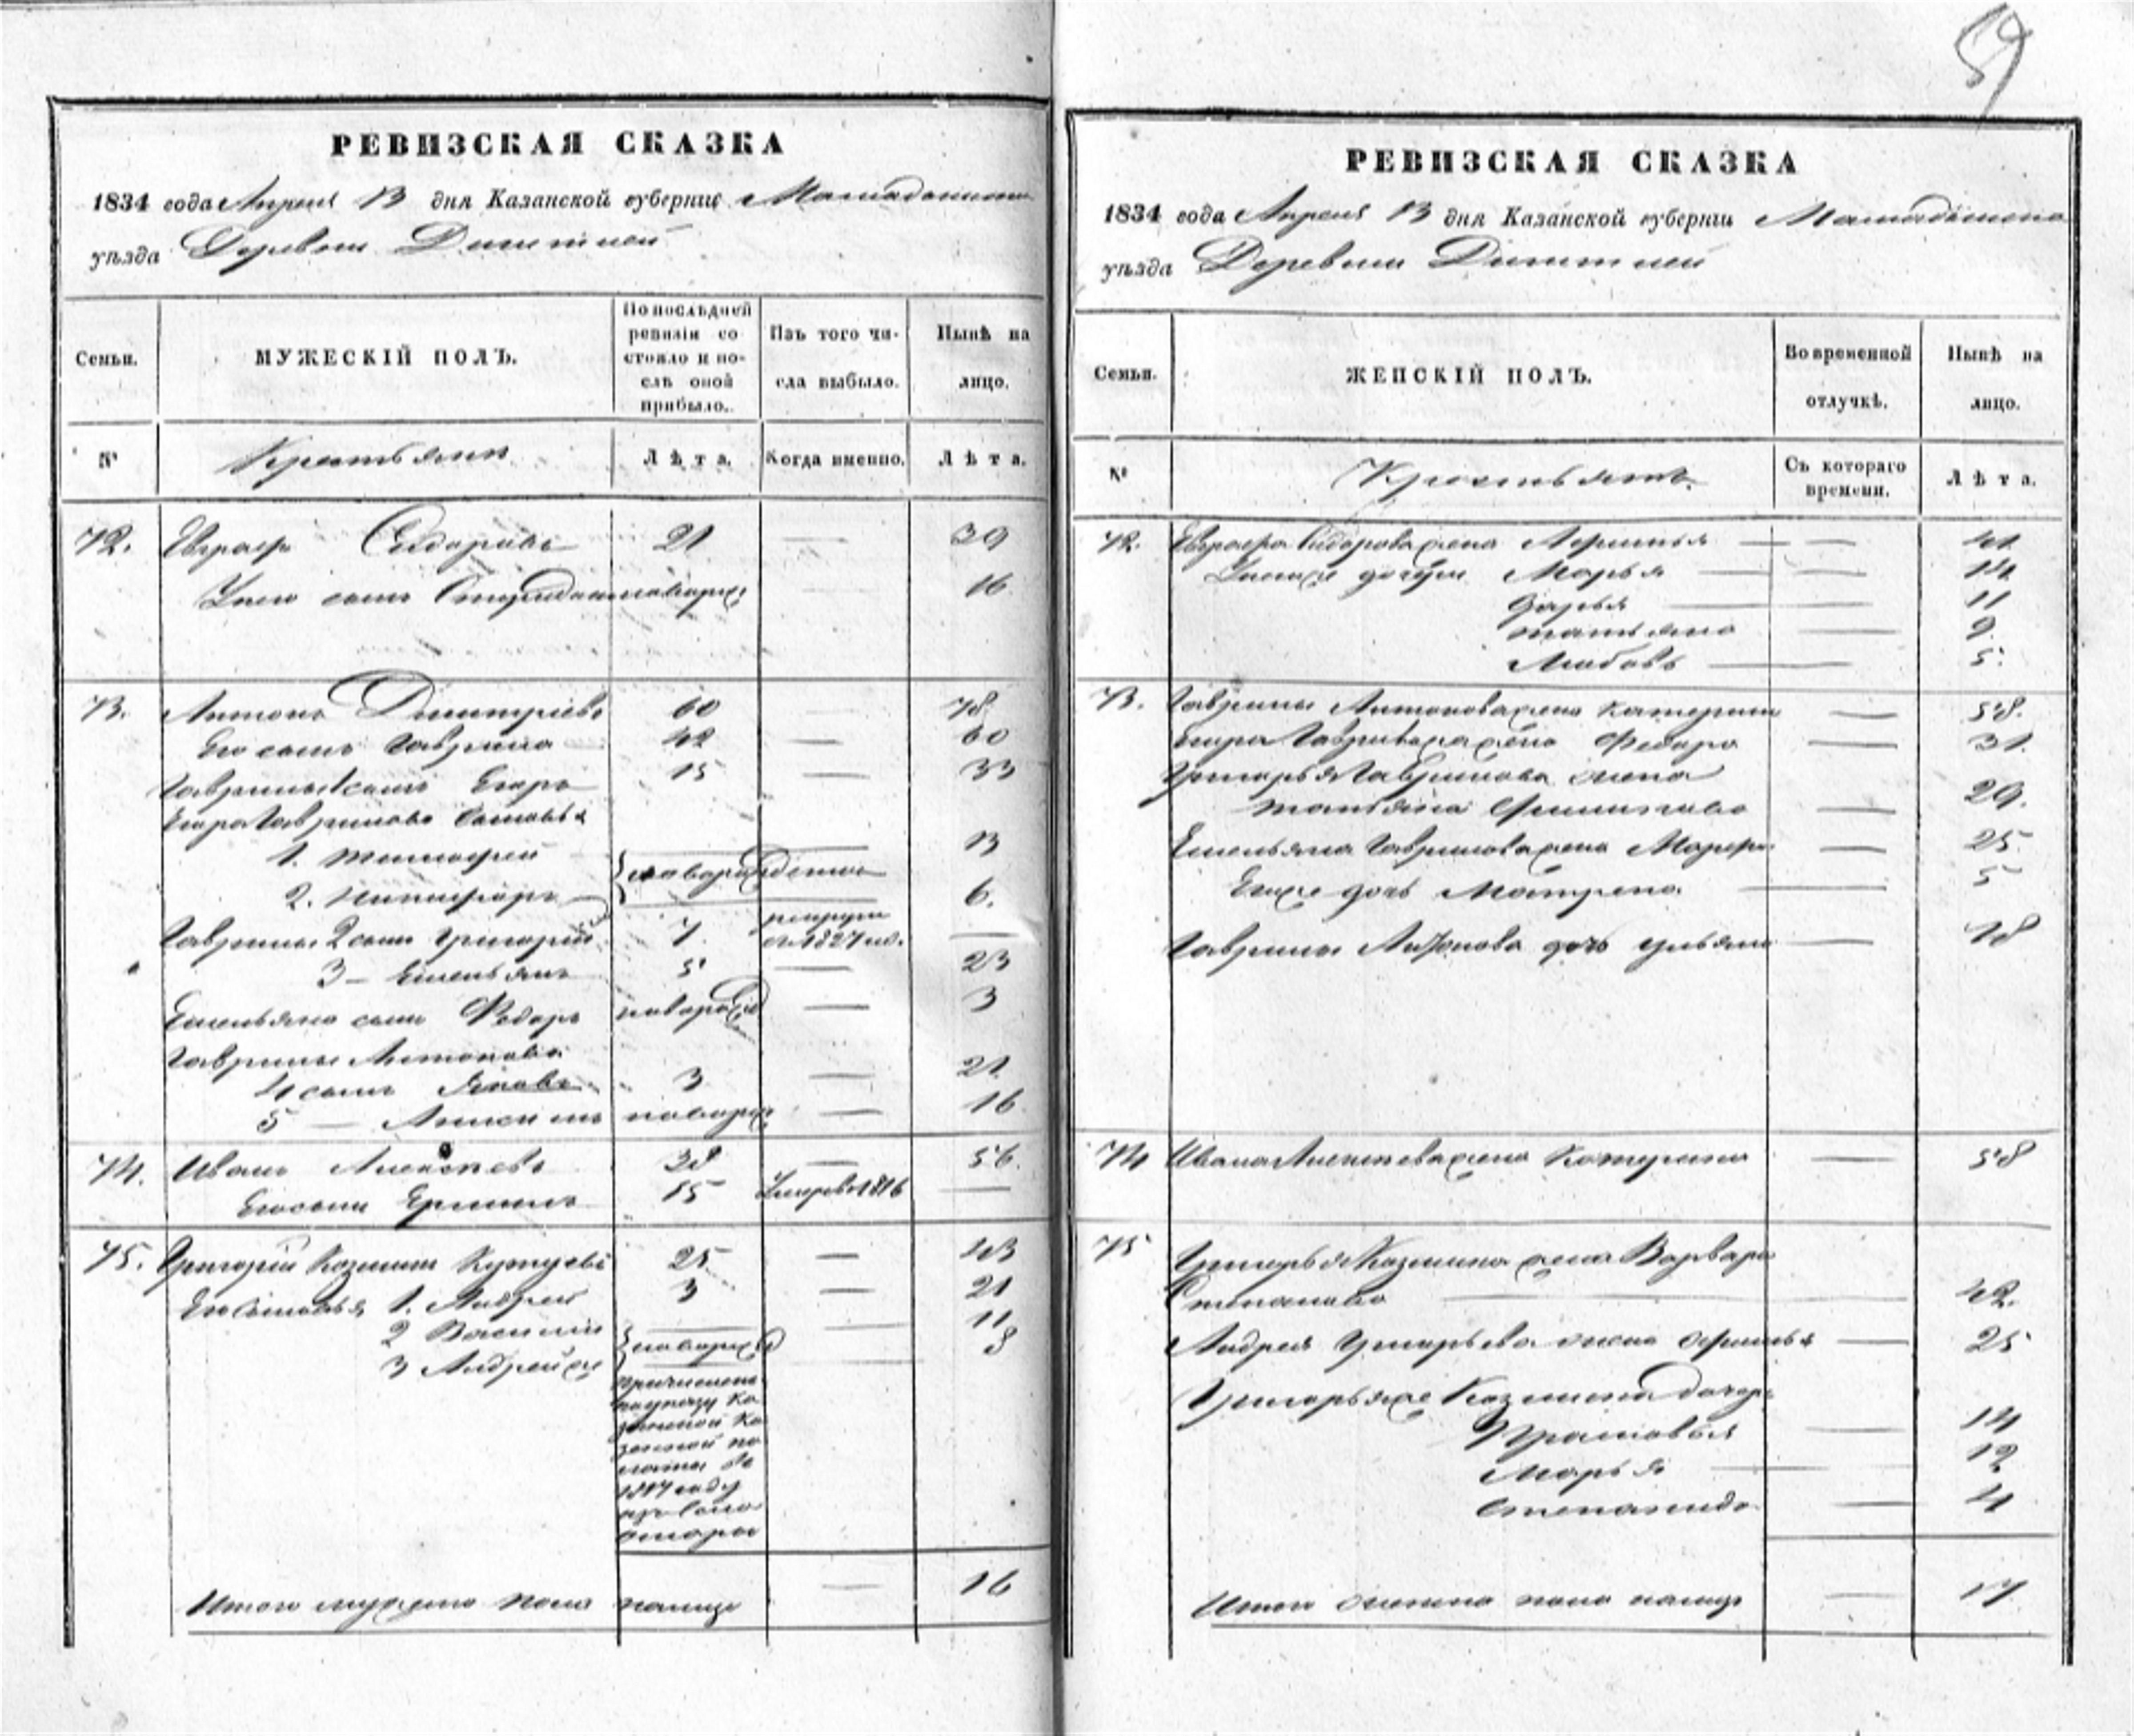 59
РЕВИЗСКАЯ СКАЗКА
1834 года Апреля 13 дня Казанской губерніи
уѣзда Деревни
Семьи.
МУЖЕСКІЙ ПОЛЪ.
По послѣдней ревизіи состояло и послѣ оной прибыло.
Изъ того числа выбыло.
Нынѣ на лицо.
№
Крестьяне
Лѣта.
Когда именно.
Лѣта.
72. Сидоровъ 21 — 39
сынъ новорож 16
73. Антонъ Дмитріевъ 60 — 78
Его сынъ Гаврила 42 — 60
Гаврилы 1 сынъ Егоръ 15 — 33
Егора Гаврилова сыновья
1. Тимофей 13
новорожденные
2. Никифоръ 6.
Гаврилы 2 сынъ Григорий 7 рекруты въ 1827 —
3 — Емельянъ 5 — 23
Емельяна сынъ Федоръ новорожд — 3
Гаврилы Антонова
4 сынъ Яковъ 3 — 21
5 — новорож — 16
74. Иванъ Алексеевъ 38 — 56.
Его сынъ 15 Умеръ в 1816 —
75. Григорій Козминъ 25 — 43
Его сыновья 1. Андрей 3 — 21
2 Василий — 11
новорожд
3 Андрей же 8
причислены
по указу Ка
зенной
1817 году
Итого мужеска пола налицо — 16
РЕВИЗСКАЯ СКАЗКА
1834 года Апреля 13 дня Казанской губерніи
уѣзда Деревни
Семьи.
ЖЕНСКІЙ ПОЛЪ.
Во временной отлучкѣ.
Нынѣ на лицо.
№
Крестьянъ
Съ котораго времени.
Лѣта.
72. Сидорова жена — 41
дочери Марья — 14
Дарья — 11
Татьяна — 9
Любовь — 5
73. Гаврилы Антонова жена Катерина — 58.
Егора Гаврилова жена Федора — 31.
Григорья Гаврилова жена
Татьяна — 29.
Емельяна Гаврилова жена — 25
дочь Матрена — 5
Гаврилы Антонова дочь Ульяна — 18
74 Ивана Алексеева жена Катерина — 58
75 Григорья Козмина жена Варвара
Степанова — 42.
Андрея Григорьева жена — 25
Григорья же Козмина дочери
Прасковья — 14
Марья — 12
Степанида — 4
Итого женска пола налицо — 17